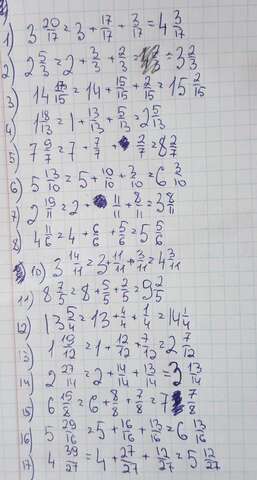 1) 3 20/17 = 3 + 17/17 + 3/17 = 4 3/17
2) 2 5/3 = 2 + 3/3 + 2/3 = 3 2/3
3) 14 17/15 = 14 + 15/15 + 2/15 = 15 2/15
4) 1 18/13 = 1 + 13/13 + 5/13 = 2 5/13
5) 7 9/7 = 7 + 7/7 + 2/7 = 8 2/7
6) 5 13/10 = 5 + 10/10 + 3/10 = 6 3/10
7) 2 19/11 = 2 + 11/11 + 8/11 = 3 8/11
8) 4 11/6 = 4 + 6/6 + 5/6 = 5 5/6
10) 3 14/11 = 3 + 11/11 + 3/11 = 4 3/11
11) 8 7/5 = 8 + 5/5 + 2/5 = 9 2/5
12) 13 5/4 = 13 + 4/4 + 1/4 = 14 1/4
13) 1 19/12 = 1 + 12/12 + 7/12 = 2 7/12
14) 2 27/14 = 2 + 14/14 + 13/14 = 3 13/14
15) 6 15/8 = 6 + 8/8 + 7/8 = 7 7/8
16) 5 29/16 = 5 + 16/16 + 13/16 = 6 13/16
17) 4 39/27 = 4 + 27/27 + 12/27 = 5 12/27